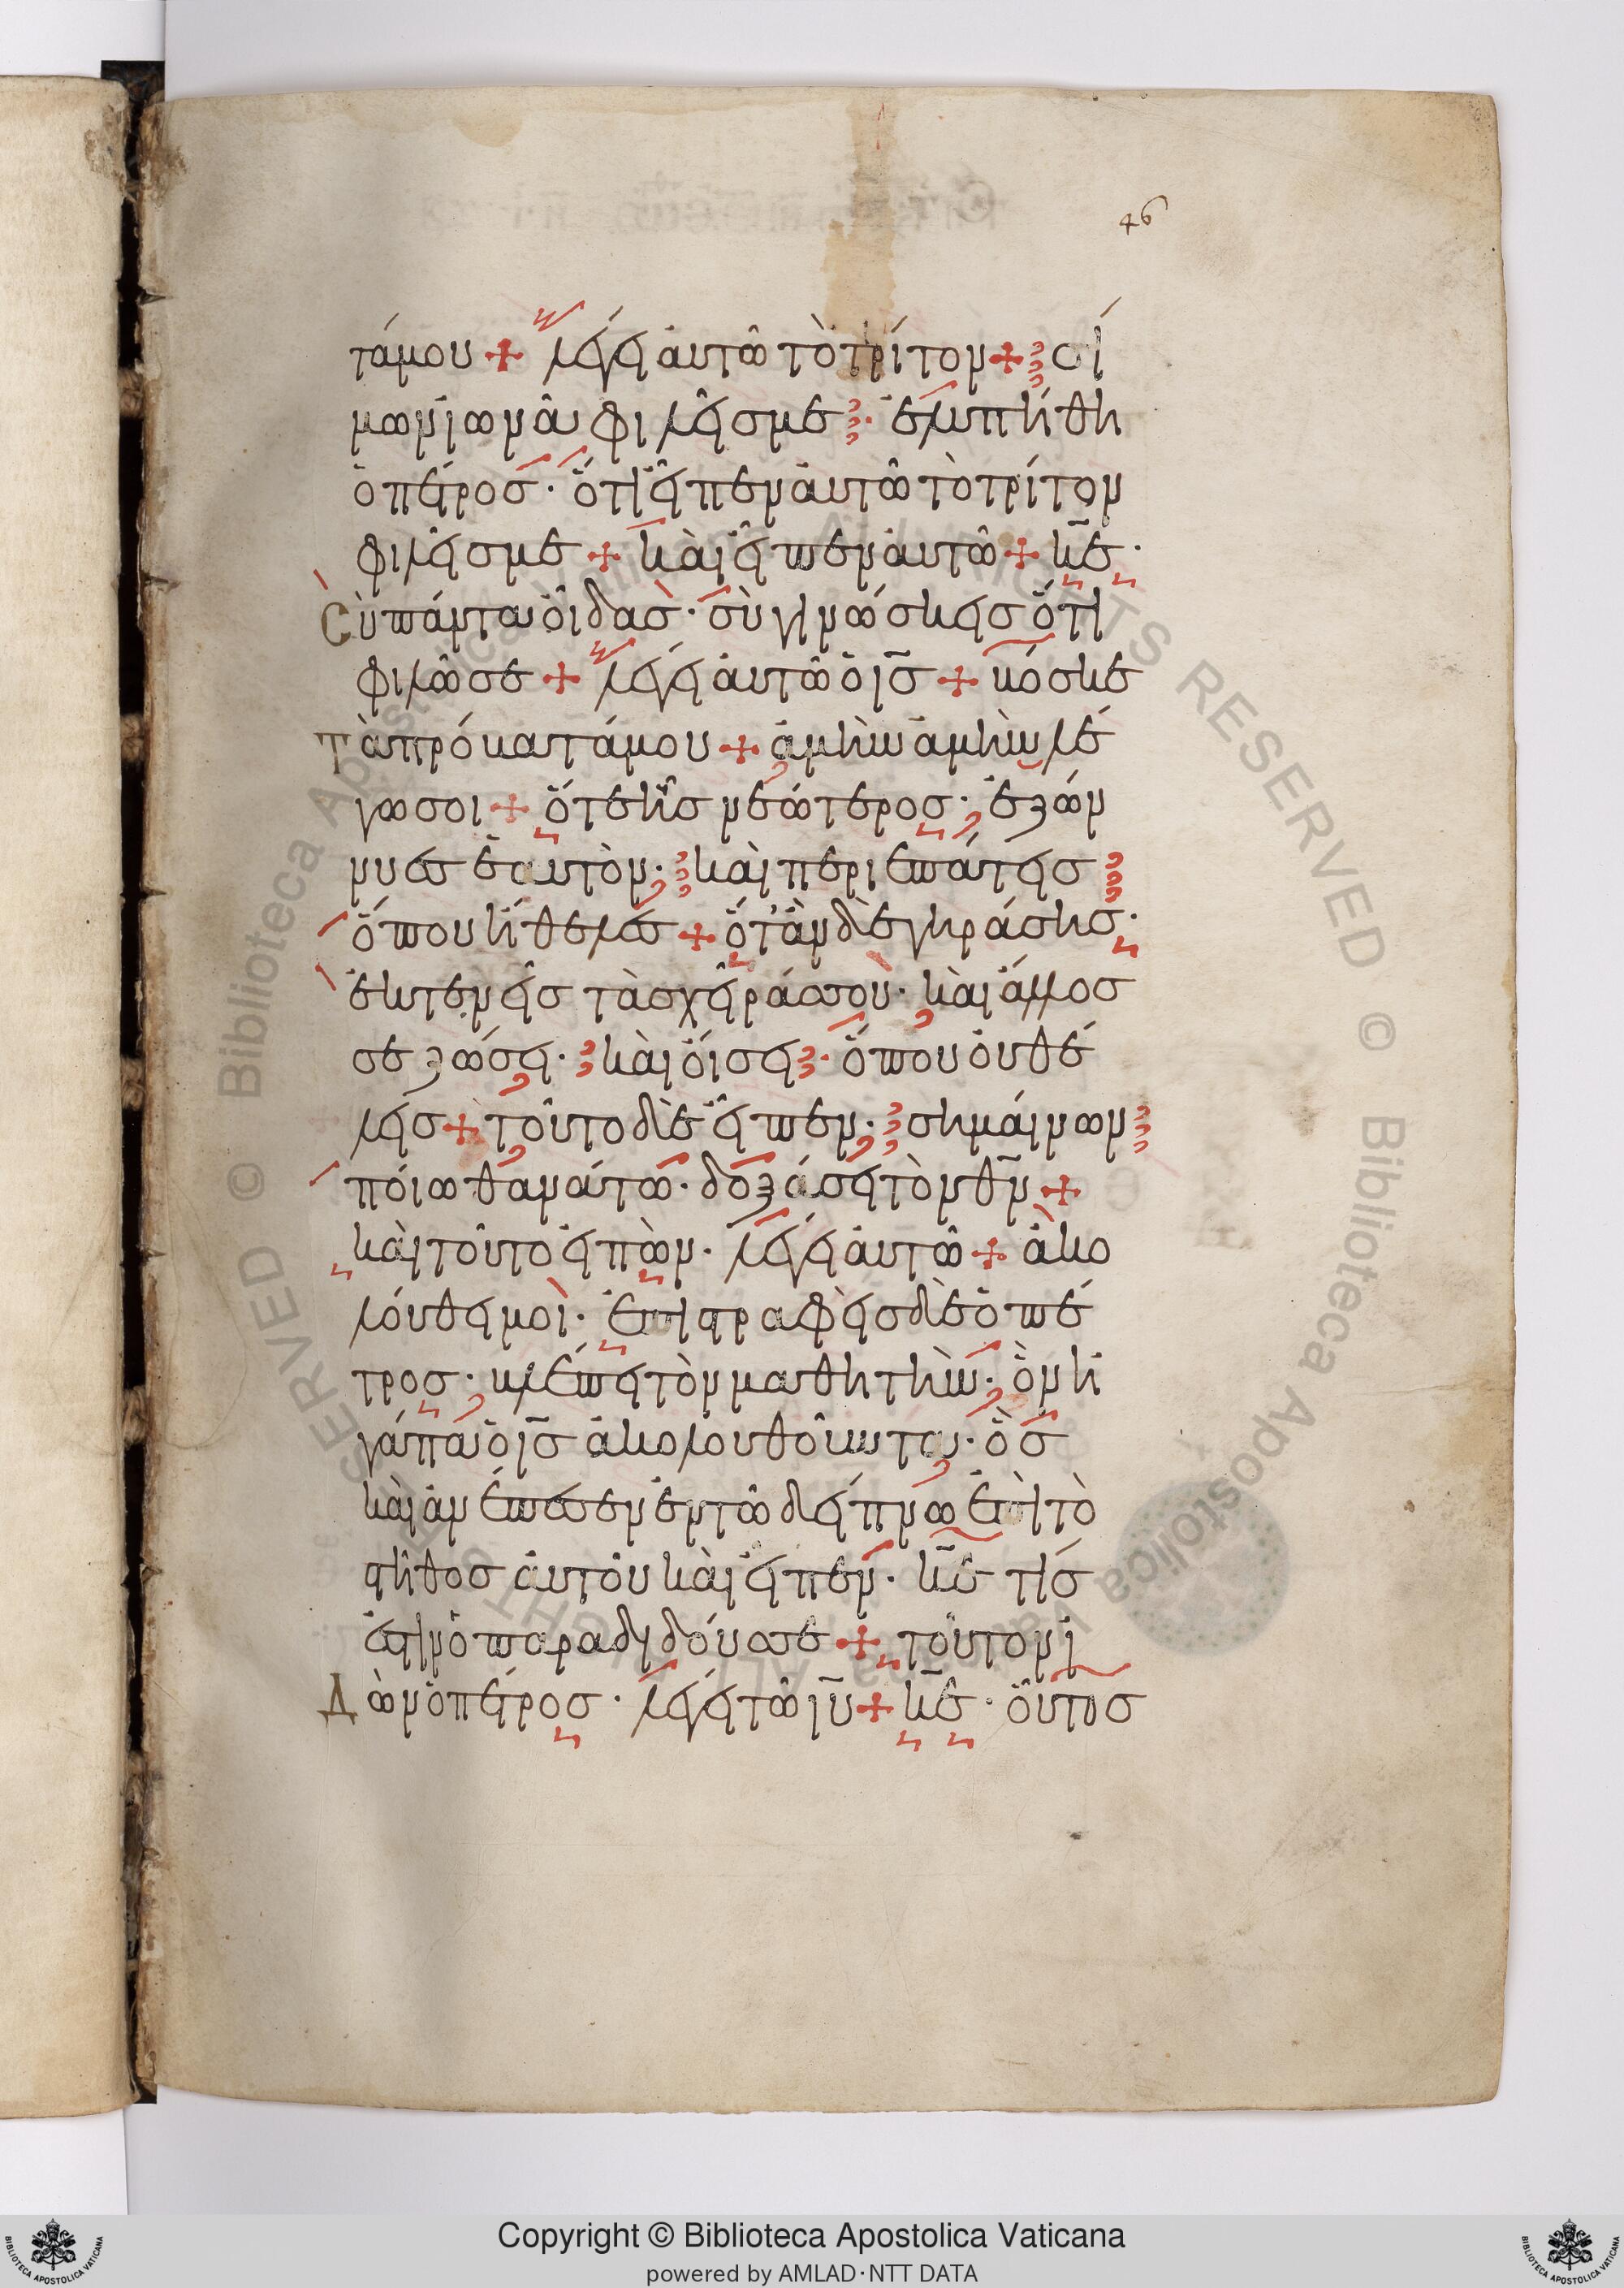 46
τά μου + λέγει αὐτῶ τὸ τρίτον + σί
μων ϊωνᾶ φιλεῖς με · ἐλυπήθη
ὁ πέτρος · ὅτι εἶπεν αὐτῶ τὸ τρίτον
φιλεῖς με + καὶ εἶπεν αὐτῶ + κ̅ε̅ ·
Σὺ πάντα οἶδας · σὺ γινώσκεις ὅτι
φιλῶ σε + λέγει αὐτῶ ὁ ι̅ς̅ + βόσκε
τὰ πρόβατά μου + ἀμὴν ἀμὴν λέ
γω σοι + ὅτε ἦς νεώτερος · ἐζών
νυες ἑαυτὸν · καὶ περιεπάτεις
ὅπου ἤθελες + ὅταν δὲ γηράσης ·
ἐκτενεῖς τὰς χεῖράς σου · καὶ ἄλλος
σε ζώσει · καὶ οἴσει · ὅπου οὐ θέ
λεις + τοῦτο δὲ εἶπεν · σημαίνων
ποίω θανάτω · δοξάσει τὸν θ̅ν̅ +
καὶ τοῦτο εἰπὼν · λέγει αὐτῶ + ἀκο
λούθει μοι · ἐπιστραφεὶς δὲ ὁ πέ
τρος · βλέπει τὸν μαθητὴν · ὃν ἠ
γάπα ὁ ι̅ς̅ ἀκολουθοῦντα · ὃς
καὶ ἀνέπεσεν ἐν τῶ δείπνω ἐπὶ τὸ
στῆθος αὐτοῦ καὶ εἶπεν · κ̅ε̅ τίς
ἐστιν ὁ παραδιδούς σε + τοῦτον ϊ
Δὼν ὁ πέτρος · λέγει τῶ ι̅υ̅ + κ̅ε̅ · οὗτος
Copyright © Biblioteca Apostolica Vaticana
powered by AMLAD·NTT DATA